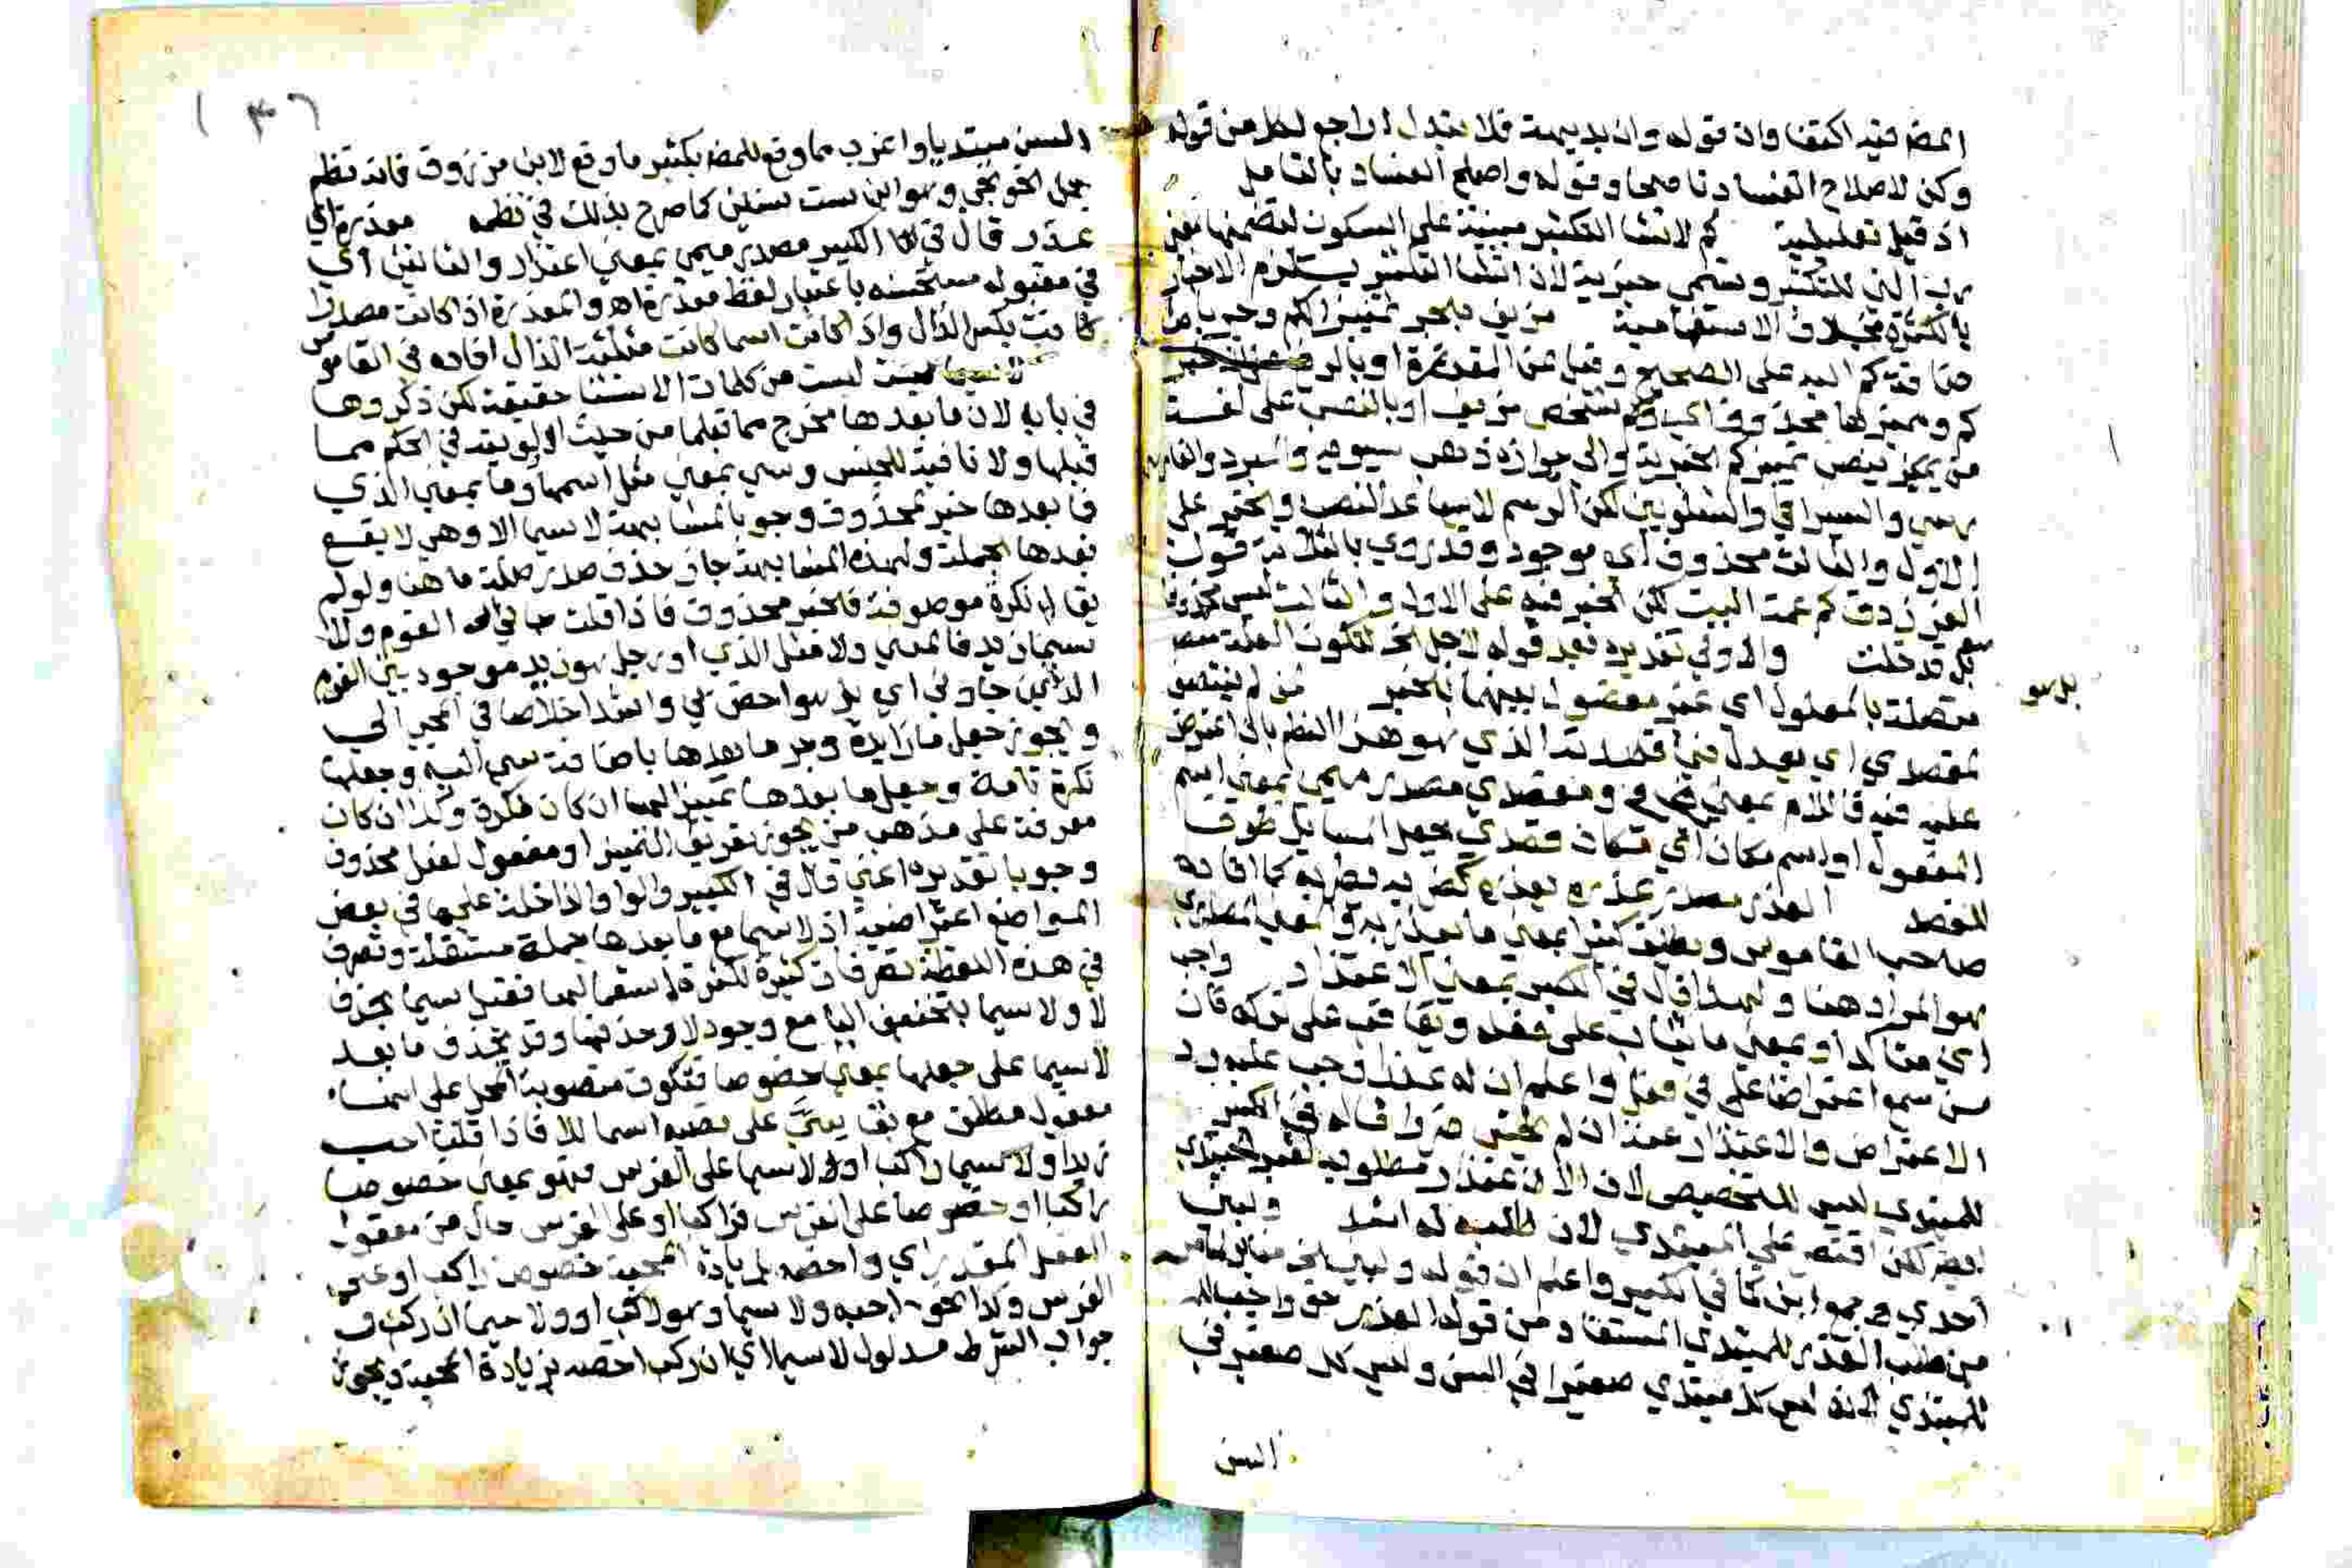 المص فيه اكتفا وان قوله وان بديهة فلا تبدل راجع لكل من قوله
وكن لاصلاح الفساد ناصحا وقوله واصلح الفساد بالتامل
اذ قيل تعليلية كم لانشا التكثير مبنية على السكون لتضمنها معنى
رب التي للتكثير وتسمى خبرية لان انشا التكثير يستلزم الاخبار
بالكثرة بخلاف الاستفهامية مزيف بالجر تمييز لكم وجره
كم اليه على الصحيح وقيل عن المقدرة او بالرفع
كم ومميزها محذوف اي كم شخص مزيف او بالنصب على لغة
من يجيز نصب تمييز كم الخبرية والى جوازه ذهب سيبويه والمبرد
والسيرافي والشلوبين لكن الرسم لا يساعد النصب والخبر على
الاول والثالث محذوف اي موجود وقد روي بالثلاثة قول
الفرزدق كم عمة البيت لكن الخبر فيه على الاول والثالث ليس محذوفا
بل قد حلبت والاولى تقديره بعد قوله لاجل الخ لتكون العلة
بل هو
متصلة بالمعلول اي غير مفصول بينهما بالخبر من لم ينتصر
لمقصدي اي يعدل في قصده الذي هو هذا النظم بان اعترض
عليه فيه فاللام بمعنى في ومقصدي مصدر ميمي بمعنى اسم
المفعول او اسم مكان اي مكان قصدي بجعل المسائل ظرف
للقصد العذر مصدر عذره يعذره كضربه يضربه كما افاده
صاحب القاموس ويطلق كثيرا بمعنى ما يعتذر به والمعنى المصدري
هو المراد هنا ولهذا قال في الكبير بمعنى الاعتذار واجب
اي متاكد او بمعنى ما يثاب على فعله ويعاقب على تركه فان
من سمع اعتراضا على في واعلم ان له عذرا وجب عليه رد
الاعتراض والاعتذار عنه ان لم يخش ضررا قاله في الكبير
للمبتدي ليس للتخصيص لان الاعتذار مطلوب لغير المبتدي
ايضا لكن اقتصر على المبتدي لان طلبه له اشد ولبني
احدى جمع ابن كما في الكبير واعلم ان قوله ولبني الخ
من طلب العذر للمبتدي المستفاد من قوله العذر حق واجب
للمبتدي لانه ليس كل مبتدي صغيرا في السن وليس كل صغير في
السن

٣٦
السن مبتديا واغرب مما وقع للمص بكثير ما وقع لابن مرزوق فانه نظم
جمل الخونجي وهو ابن ست سنين كما صرح بذلك في نظمه معذرة اي
عذر قال في الكبير مصدر ميمي بمعنى اعتذار والتانيث اي
في مقبوله مستحسنه باعتبار لفظ معذرة اه والمعذرة اذا كانت مصدرا
كانت بكسر الذال واذا كانت اسما كانت مثلثة الذال افاده في القاموس
لا سيما ليست من كلمات الاستثنا حقيقة لكن ذكروها
في بابه لان ما بعدها مخرج مما قبلها من حيث اولويته في الحكم مما
قبلها ولا نافية للجنس وسي بمعنى مثل اسمها وما بمعنى الذي
فما بعدها خبر لمحذوف وجوبا لمشابهة لا سيما الا وهي لا يقع
بعدها الجملة ولهذه المشابهة جاز حذف صدر صلة ما هنا ولو لم
نكرة موصوفة فالخبر محذوف فاذا قلت جاني القوم ولا
سيما زيد فالمعنى ولا مثل الذي او رجل هو زيد موجود بين القوم
الذين جاوني اي بل هو اخص بي واشد اخلاصا في المجي الي
ويجوز جعل ما زايدة وجر ما بعدها باضافة سي اليه وجعلها
نكرة تامة وجعل ما بعدها تمييز لها ان كان نكرة وكذا ان كان
معرفة على مذهب من يجوز تعريف التمييز او مفعول لفعل محذوف
وجوبا تقديره اعني قال في الكبير والواو الداخلة عليها في بعض
المواضع اعتراضية اذ لا سيما مع ما بعدها جملة مستقلة وتصرف
في هذه اللفظة تصرفات كثيرة لكثرة استعمالها فقيل سيما بحذف
لا ولا سيما بتخفيف اليا مع وجود لا وحذفها وقد يحذف ما بعد
لا سيما على جعلها بمعنى خصوصا فتكون منصوبة المحل على انها
مفعول مطلق مع بقا سي على نصبه اسما للا فاذا قلت احب
زيدا ولا سيما راكبا او ولا سيما على الفرس فهو بمعنى خصوصا
راكبا او خصوصا على الفرس فراكبا او على الفرس حال من مفعول
الفعل المقدر اي واخصه بزيادة المحبة خصوص راكبا او على
الفرس وكذا نحو احبه ولا سيما وهو راكب او ولا سيما ان ركب ف
جواب الشرط مدلول لا سيما اي ان ركب اخصه بزيادة المحبة ويجوز